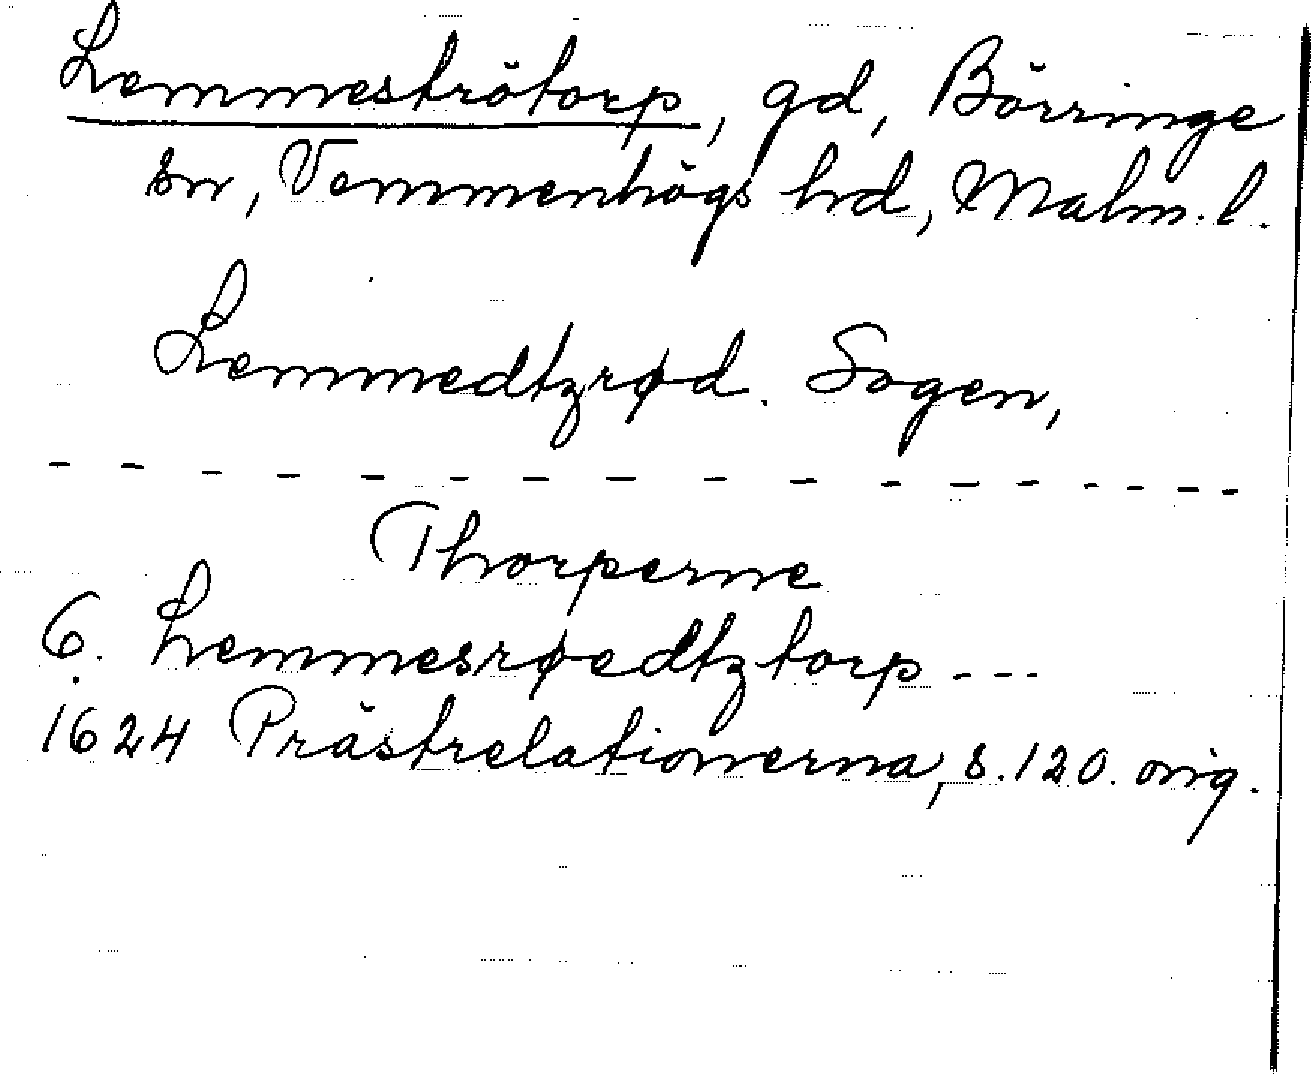 Lemmeströtorp, gd, Börringe
sn, Vemmenhögs hd, Malm. l.
Lemmedtzrød. Sogen,
- - - - - - - - - - - - - - - -
Thorperne
6. Lemmesrøedtztorp ---
1624 Prästrelationerna, s. 120. orig.